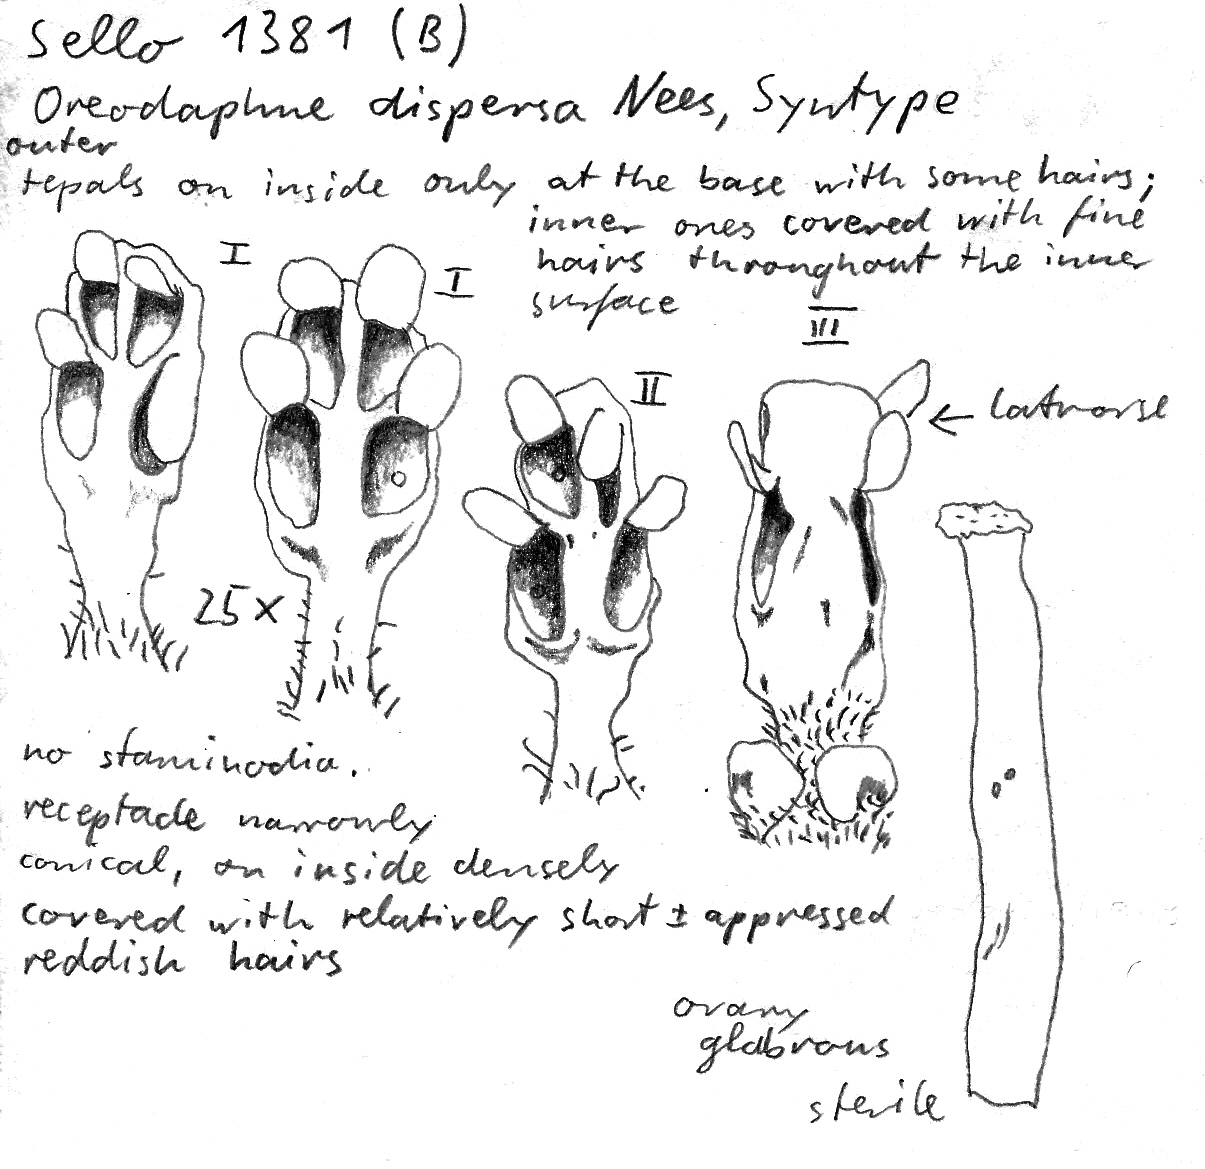 Sello 1381 (B)
Oreodaphne dispersa Nees, Syntype
outer
tepals on inside only at the base with some hairs;
inner ones covered with fine
hairs throughout the inner
surface
I
I
II
III
← latrorse
25 x
no staminodia.
receptacle narrowly
conical, on inside densely
covered with relatively short ± appressed
reddish hairs
ovary
glabrous
sterile